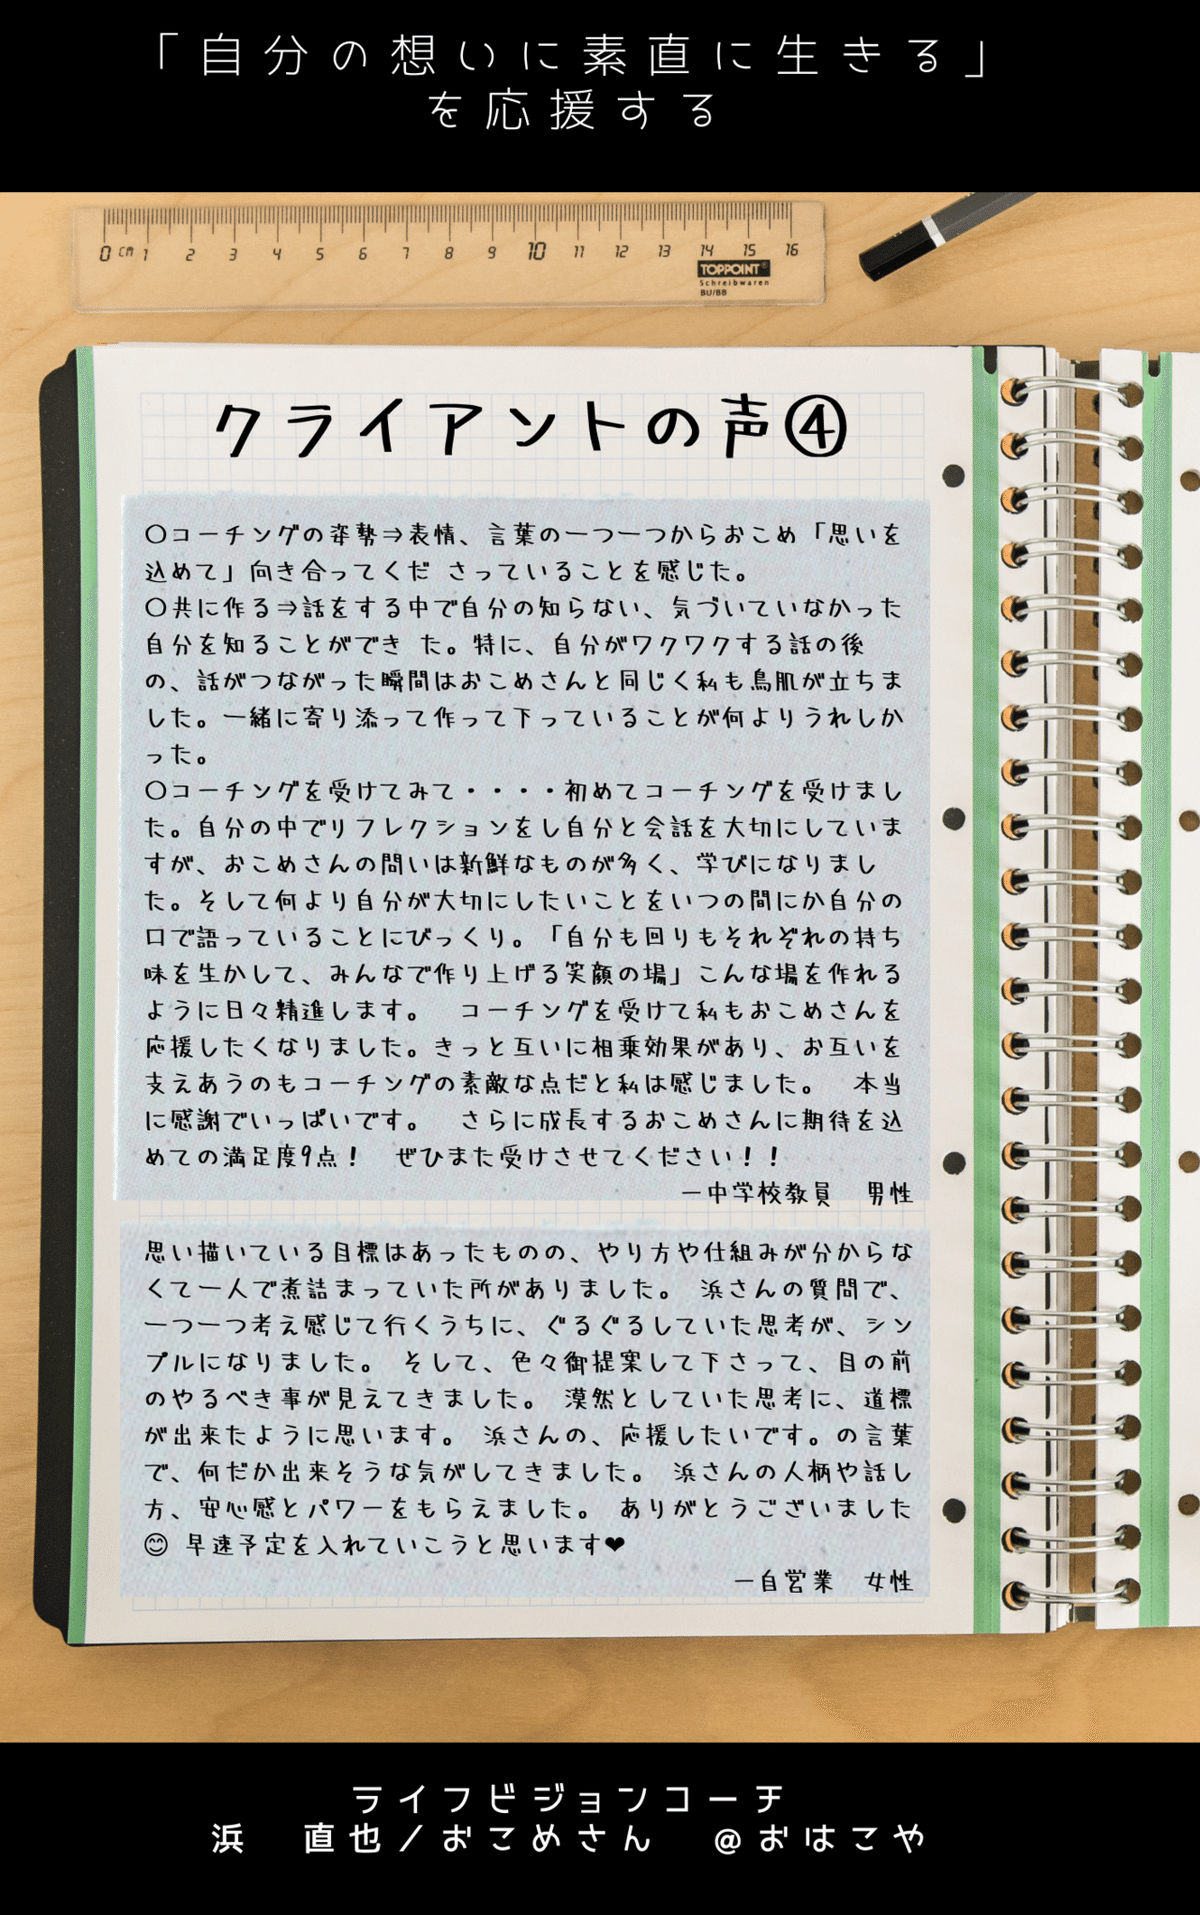 「自分の想いに素直に生きる」
を応援する
0 cm 1 2 3 4 5 6 7 8 9 10 11 12 13 14 15 16
TOPPOINT®
Schreibwaren
BU/BB
クライアントの声④
〇コーチングの姿勢⇒表情、言葉の一つ一つからおこめ「思いを
込めて」向き合ってくだ さっていることを感じた。
〇共に作る⇒話をする中で自分の知らない、気づいていなかった
自分を知ることができ た。特に、自分がワクワクする話の後
の、話がつながった瞬間はおこめさんと同じく私も鳥肌が立ちま
した。一緒に寄り添って作って下っていることが何よりうれしか
った。
〇コーチングを受けてみて・・・・初めてコーチングを受けまし
た。自分の中でリフレクションをし自分と会話を大切にしていま
すが、おこめさんの問いは新鮮なものが多く、学びになりまし
た。そして何より自分が大切にしたいことをいつの間にか自分の
口で語っていることにびっくり。「自分も回りもそれぞれの持ち
味を生かして、みんなで作り上げる笑顔の場」こんな場を作れる
ように日々精進します。　コーチングを受けて私もおこめさんを
応援したくなりました。きっと互いに相乗効果があり、お互いを
支えあうのもコーチングの素敵な点だと私は感じました。　本当
に感謝でいっぱいです。　さらに成長するおこめさんに期待を込
めての満足度9点！　ぜひまた受けさせてください！！
ー中学校教員　男性
思い描いている目標はあったものの、やり方や仕組みが分からな
くて一人で煮詰まっていた所がありました。 浜さんの質問で、
一つ一つ考え感じて行くうちに、ぐるぐるしていた思考が、シン
プルになりました。 そして、色々御提案して下さって、目の前
のやるべき事が見えてきました。 漠然としていた思考に、道標
が出来たように思います。 浜さんの、応援したいです。の言葉
で、何だか出来そうな気がしてきました。 浜さんの人柄や話し
方、安心感とパワーをもらえました。 ありがとうございました
😊 早速予定を入れていこうと思います❤
ー自営業　女性
ライフビジョンコーチ
浜　直也／おこめさん　@おはこや